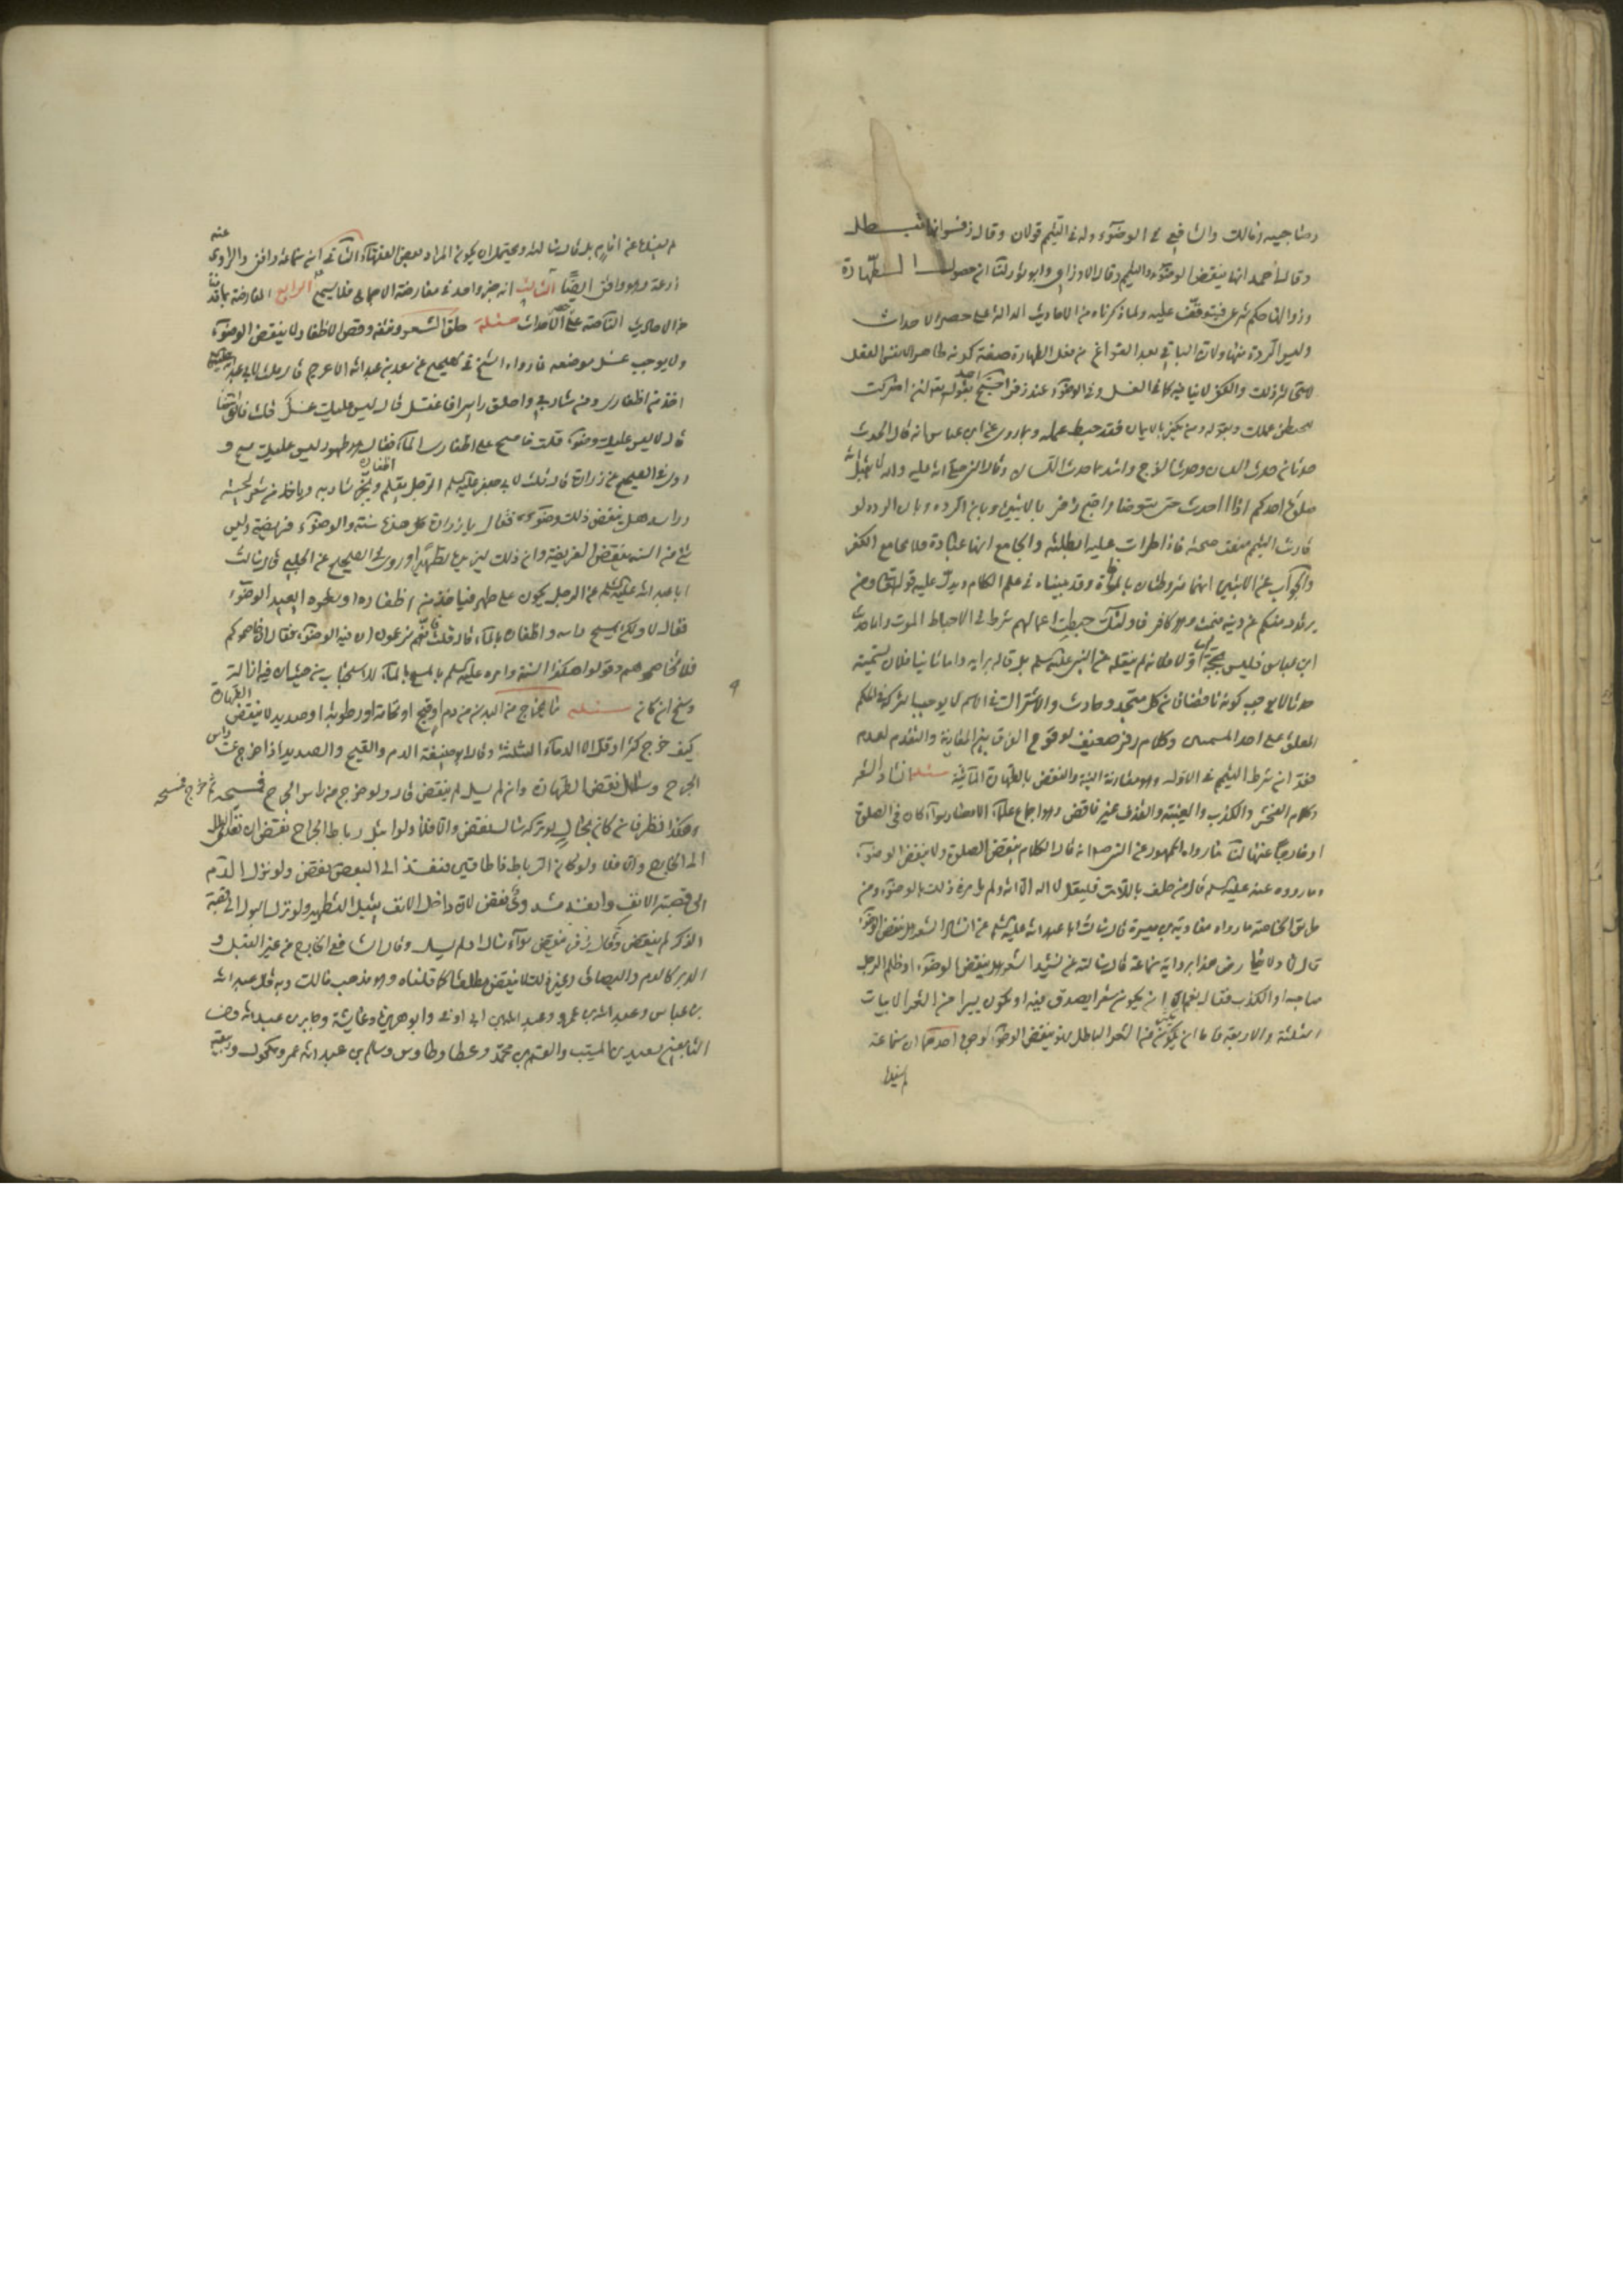 وصاحبيه ومالك والشافعي في الوضوء وله في التيمم قولان وقال قوم انها تبطل
وقال احمد انها ينقض الوضوء والتيمم وقال الاوزاعي وابو ثور لنا ان حصول الطهارة
وزوالها حكم شرعي فيتوقف عليه ولما ذكرناه من الاحاديث الدالة على حصر الاحداث
وليس الردة منها ولان الباقي بعد الفراغ من فعل الطهارة صفة كونه طاهرا لا نفس الفعل
لاستحالة ذلك والكفر لا ينافيه كما في الغسل وفي الوضوء عند زفر احتج احمد بقوله تعالى لئن اشركت
ليحبطن عملك وبقوله ومن يكفر بالايمان فقد حبط عمله وبما روى عن ابن عباس انه قال الحدث
حدثان حدث اللسان وحدث الفرج واشدهما حدث اللسان وقال النبي صلى الله عليه واله لا يقبل الله
صلوة احدكم اذا احدث حتى يتوضا واحتج زفر بالايتين وبان الردة لو
قارنت التيمم منعت صحته فاذا طرات عليه ابطلته والجامع انها عبادة فلا تجامع الكفر
والجواب عن الايتين انهما مشروطتان بالموافاة وقد بيناه في علم الكلام ويدل عليه قوله تعالى ومن
يرتدد منكم عن دينه فيمت وهو كافر فاولئك حبطت اعمالهم شرط في الاحباط الموت واما حديث
ابن عباس فليس بحجة اما اولا فلانه لم ينقله عن النبي عليه السلم بل قاله برايه واما ثانيا فلان تسميته
حدثا لا يوجب كونه ناقضا فان كل متجدد حادث والاشتراك في الاسم لا يوجب الشركة في الحكم
المعلق على احد المسميين وكلام زفر ضعيف لوقوع الفرق بين المقارنة والتقدم لعدم
فقد ان شرط التيمم في الاول وهو مقارنة النية والنقض بالطهارة المائية مسئله انشاد الشعر
وكلام الفحش والكذب والغيبة والقذف غير ناقض وهو اجماع علماء الامصار سواء كان في الصلوة
او خارجا عنها لنا ما رواه الجمهور عن النبي ص انه قال الكلام ينقض الصلوة ولا ينقض الوضوء
وما رووه عنه عليه السلم قال من حلف باللات فليقل لا اله الا الله ولم يامره في ذلك بالوضوء ومن
طريق الخاصة ما رواه معاوية بن ميسرة قال سالت ابا عبد الله عليه السلم عن انشاد الشعر هل ينقض الوضوء
قال لا ولا يعارض هذا برواية سماعة قال سالته عن نشيد الشعر هل ينقض الوضوء او ظلم الرجل
صاحبه او الكذب فقال نعم الا ان يكون شعرا يصدق فيه او يكون يسيرا من الشعر الابيات
الثلثة والاربعة فاما ان يكثر من الشعر الباطل فهو ينقض الوضوء لوجوه احدها ان سماعة
لم يسندها
لم يسندها عن امام بل قال سالته ويحتمل ان يكون المراد بعض الفقهاء الثاني ان سماعة واقفي والراوي عنه
زرعة وهو واقفي ايضا الثالث انه خبر واحد في معارضة الاجماع فلا يسمع الرابع المعارضة بما قدمنا
من الاحاديث الناصة على الاحداث مسئله حلق الشعر ونتفه وقص الاظفار لا ينقض الوضوء
ولا يوجب غسل موضعه لما رواه الشيخ في الصحيح عن سعيد بن عبد الله الاعرج قال قلت لابي عبد الله عليه السلم
اخذ من اظفاري ومن شاربي واحلق راسي افاغتسل قال ليس عليك غسل قلت فاتوضا
قال لا ليس عليك وضوء قلت فامسح على اظفاري الماء فقال هو طهور ليس عليك مسح و
روى في الصحيح عن زرارة قال قلت لابي جعفر عليه السلم الرجل يقلم اظفاره ويجز شاربه وياخذ من شعر لحيته
وراسه هل ينقض ذلك وضوءه فقال يا زرارة كل هذا سنة والوضوء فريضة وليس
شئ من السنة ينقض الفريضة وان ذلك ليزيده تطهيرا وروى في الصحيح عن الحلبي قال سالت
ابا عبد الله عليه السلم عن الرجل يكون على طهر فياخذ من اظفاره او شعره ايعيد الوضوء
فقال لا ولكن يمسح راسه واظفاره بالماء قال قلت فانهم يزعمون ان فيه الوضوء فقال ان خاصموكم
فلا تخاصموهم وقولوا هكذا السنة وامره عليه السلم بالمسح بالماء للاستحباب من حيث ان فيه ازالة
وسخ ان كان مسئله ما يخرج من البدن من دم او قيح او نخامة او رطوبة او صديد لا ينقض الطهارة
كيف خرج كثر او قل الا الدماء الثلثة وقال ابو حنيفة الدم والقيح والصديد اذا خرج عن راس
الجرح وسال نقض الطهارة وان لم يسل لم ينقض قال ولو خرج من راس الجرح فمسحه ثم خرج فمسحه
وهكذا نظر فان كان بحال لو تركه سال نقض والا فلا ولو ابتل رباط الجراح نقض ان نفذ البلل
الى الخارج والا فلا ولو كان الرباط ذا طاقين فنفذ الى البعض نقض ولو نزل الدم
الى قصبة الانف نقض لان داخل الانف يقبل التطهير ولو نزل البول الى قصبة
الذكر لم ينقض وقال زفر ينقض سواء سال او لم يسل وقال الشافعي الخارج من غير القبل و
الدبر كالدم والبصاق وغير ذلك لا ينقض مطلقا كما قلناه وهو مذهب مالك وبه قال عبد الله
بن عباس وعبد الله بن عمر وعبد الله بن ابي اوفى وابو هريرة وعايشة وجابر بن عبد الله ومن
التابعين سعيد بن المسيب والقسم بن محمد وعطا وطاوس وسالم بن عبد الله بن عمر ومكحول وربيعة